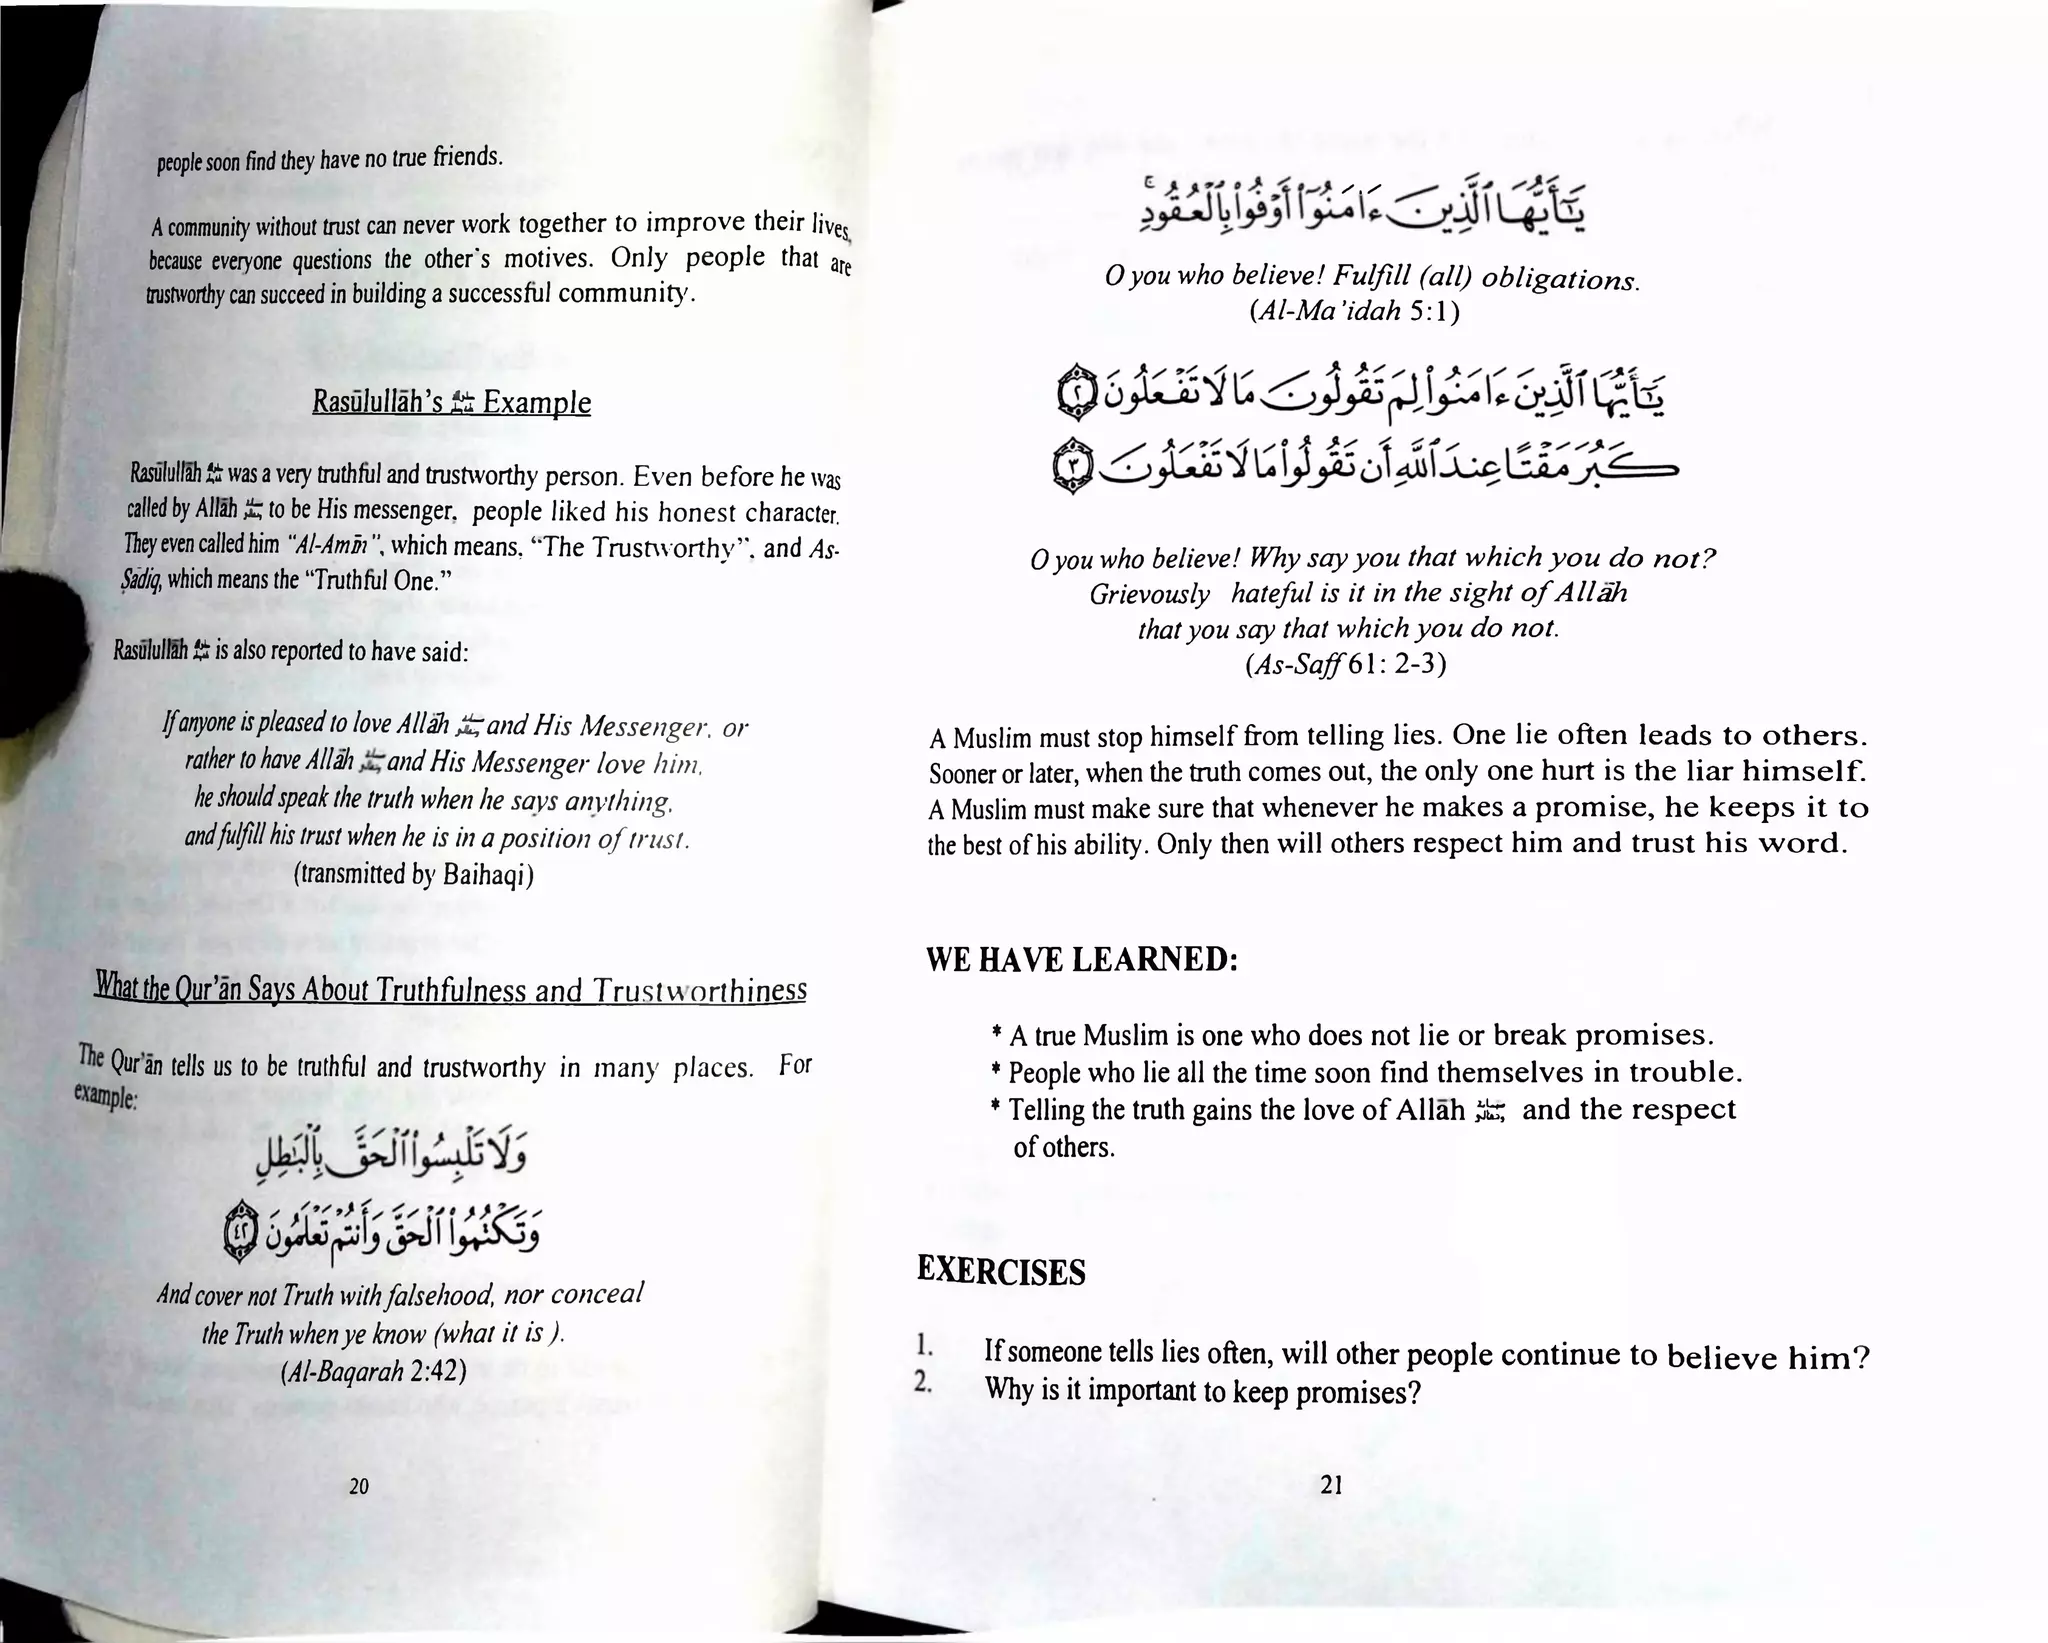 people soon find they have no true friends.
A community without trust can never work together to improve their lives,
because everyone questions the other's motives. Only people that are
trustworthy can succeed in building a successful community.
Rasūlullāh's ﷺ Example
Rasūlullāh ﷺ was a very truthful and trustworthy person. Even before he was
called by Allāh to be His messenger, people liked his honest character.
They even called him "Al-Amīn", which means, "The Trustworthy", and As-
Ṣādiq, which means the "Truthful One."
Rasūlullāh ﷺ is also reported to have said:
If anyone is pleased to love Allāh and His Messenger, or
rather to have Allāh and His Messenger love him,
he should speak the truth when he says anything,
and fulfill his trust when he is in a position of trust.
(transmitted by Baihaqi)
What the Qur'ān Says About Truthfulness and Trustworthiness
The Qur'ān tells us to be truthful and trustworthy in many places. For
example:
وَلَا تَلْبِسُوا۟ ٱلْحَقَّ بِٱلْبَٰطِلِ
وَتَكْتُمُوا۟ ٱلْحَقَّ وَأَنتُمْ تَعْلَمُونَ ٤٢
And cover not Truth with falsehood, nor conceal
the Truth when ye know (what it is ).
(Al-Baqarah 2:42)
20
يَٰٓأَيُّهَا ٱلَّذِينَ ءَامَنُوٓا۟ أَوْفُوا۟ بِٱلْعُقُودِ ۚ
O you who believe! Fulfill (all) obligations.
(Al-Ma'idah 5:1)
يَٰٓأَيُّهَا ٱلَّذِينَ ءَامَنُوا۟ لِمَ تَقُولُونَ مَا لَا تَفْعَلُونَ ٢
كَبُرَ مَقْتًا عِندَ ٱللَّهِ أَن تَقُولُوا۟ مَا لَا تَفْعَلُونَ ٣
O you who believe! Why say you that which you do not?
Grievously hateful is it in the sight of Allāh
that you say that which you do not.
(As-Saff 61: 2-3)
A Muslim must stop himself from telling lies. One lie often leads to others.
Sooner or later, when the truth comes out, the only one hurt is the liar himself.
A Muslim must make sure that whenever he makes a promise, he keeps it to
the best of his ability. Only then will others respect him and trust his word.
WE HAVE LEARNED:
* A true Muslim is one who does not lie or break promises.
* People who lie all the time soon find themselves in trouble.
* Telling the truth gains the love of Allāh and the respect
of others.
EXERCISES
1. If someone tells lies often, will other people continue to believe him?
2. Why is it important to keep promises?
21